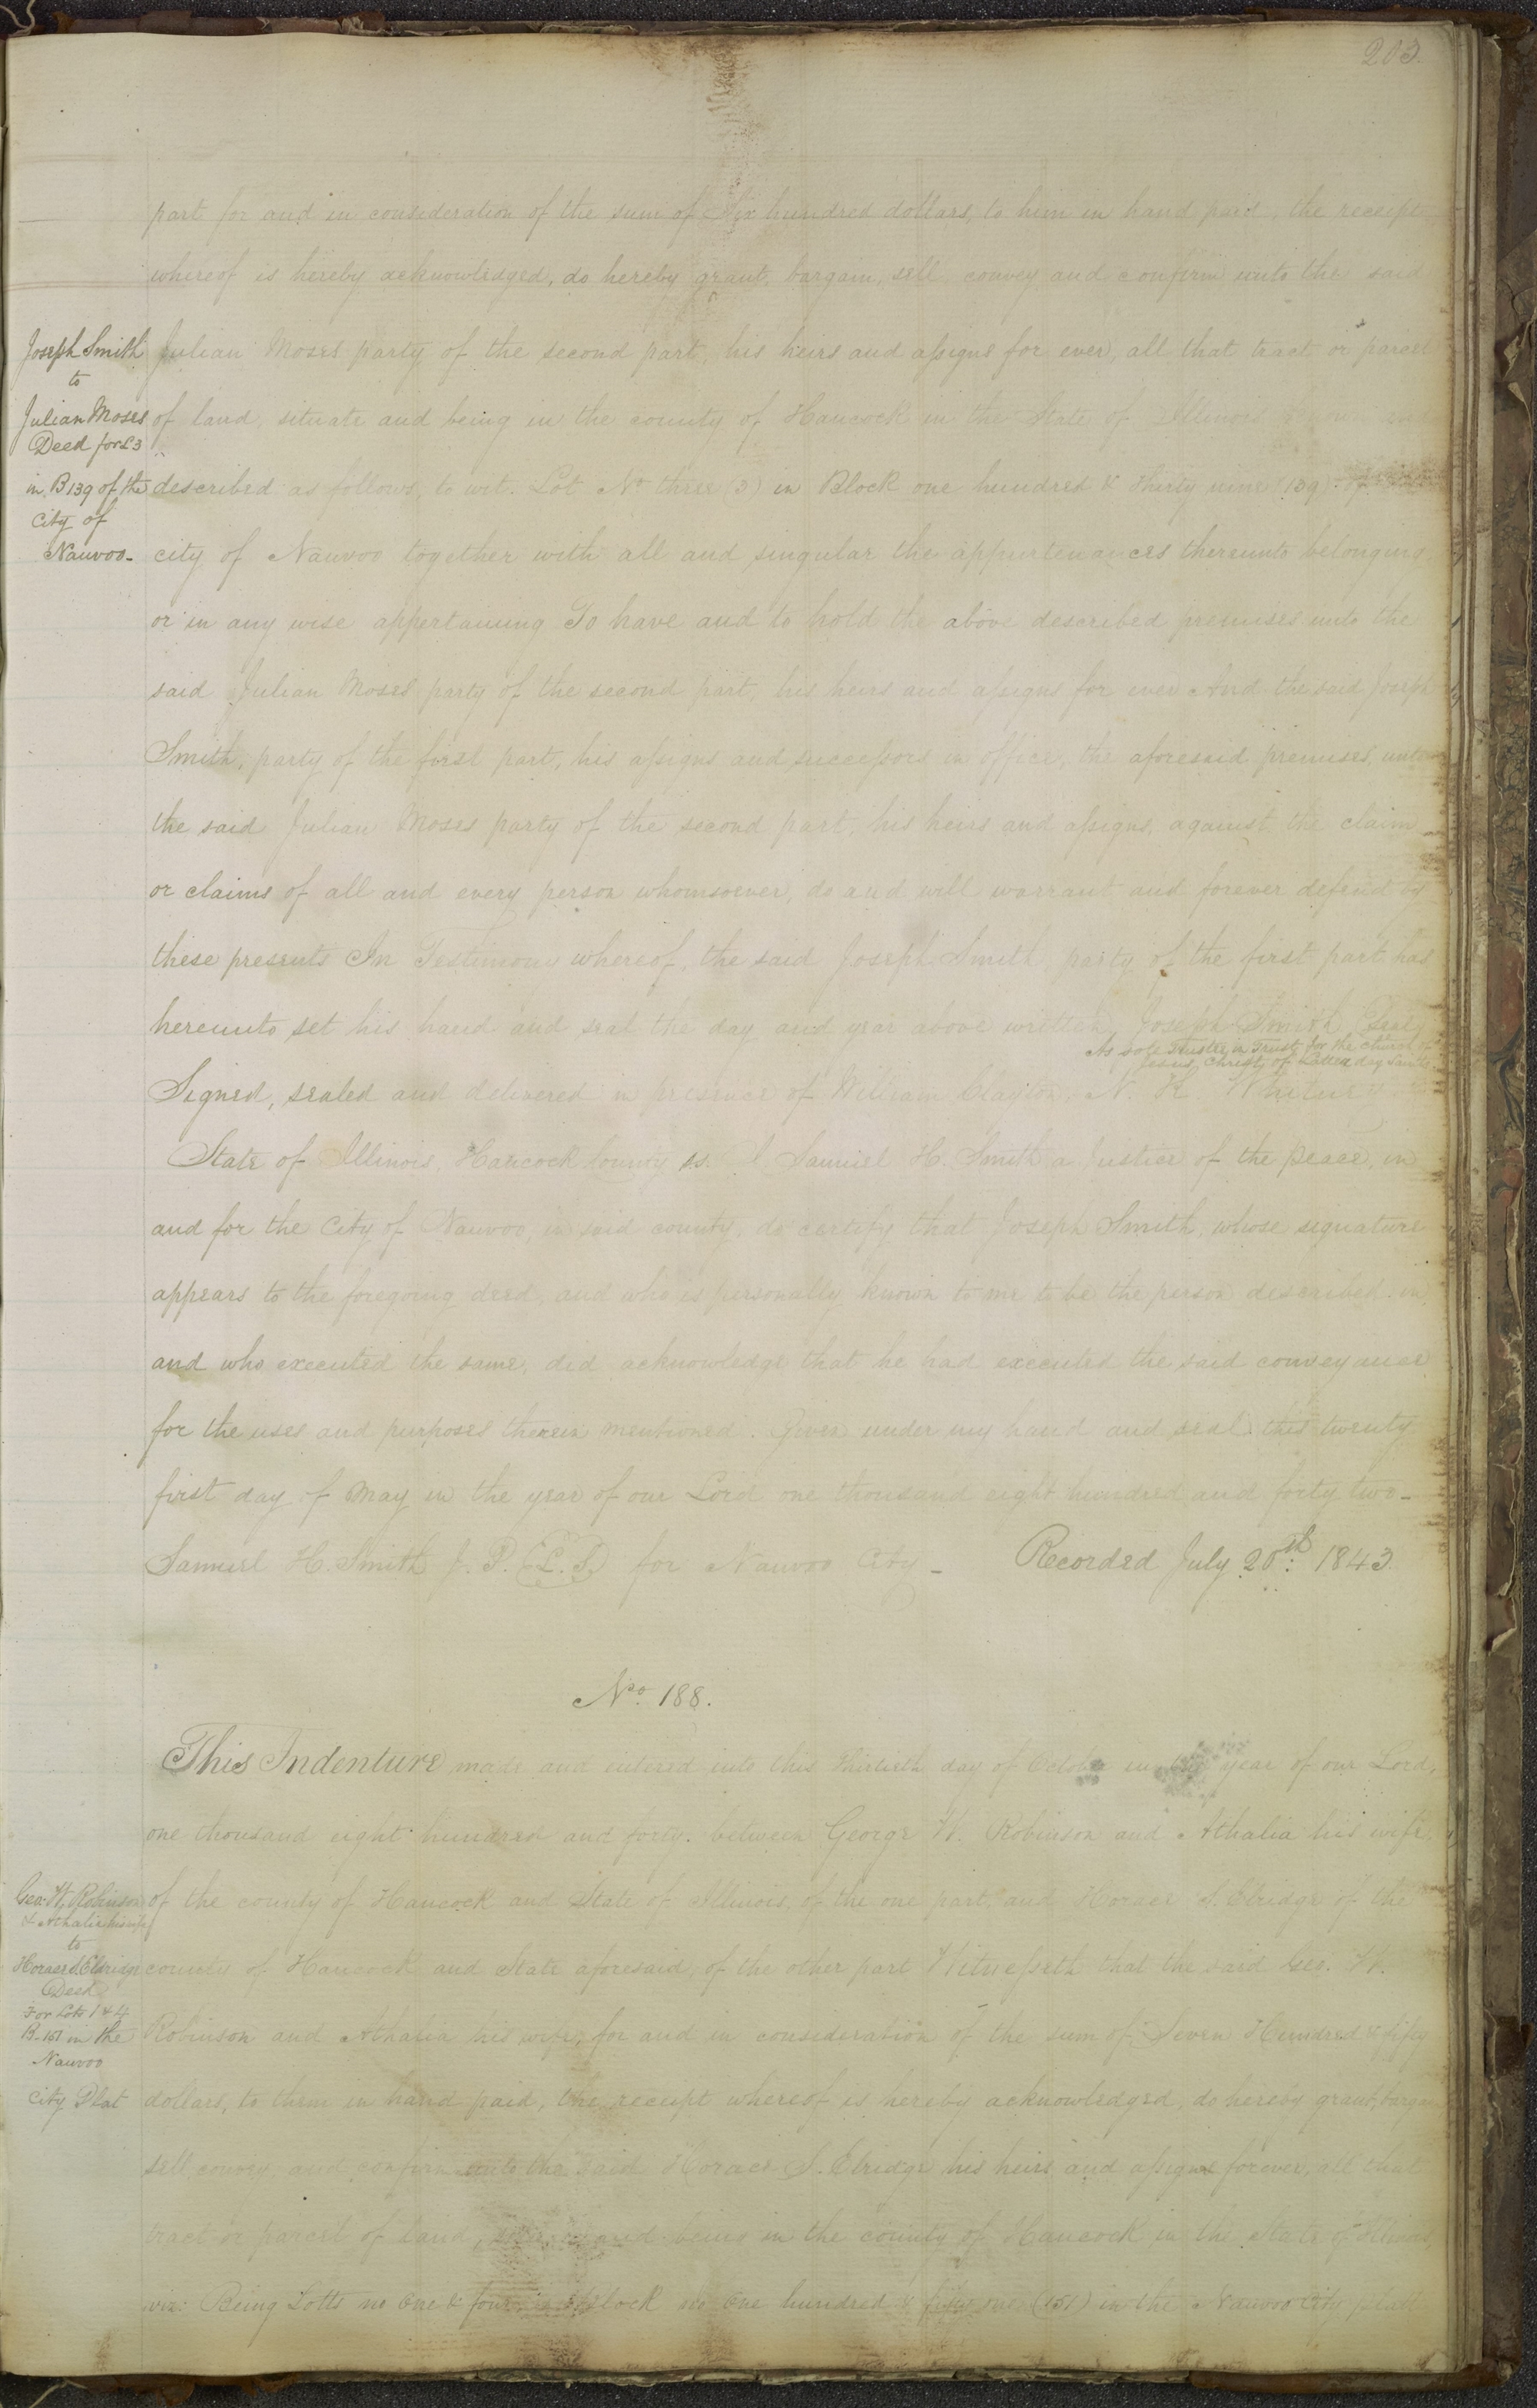 203.
part for and in consideration of the sum of Six hundred dollars, to him in hand paid, the receipt
whereof is hereby acknowledged, do hereby grant, bargain, sell convey and confirm unto the said
Joseph Smith
to
Julian Moses
Deed for L3
in B139 of the
City of
Nauvoo-
Julian Moses party of the second part, his heirs and assigns for ever, all that tract or parcel
of land, situate and being in the county of Hancock in the State of Illinois known and
described as follows, to wit. Lot No three (3) in Block one hundred & thirty nine (139) of
city of Nauvoo together with all and singular the appurtenances thereunto belonging,
or in any wise appertaining To have and to hold the above described premises unto the
said Julian Moses party of the second part, his heirs and assigns for ever And the said Joseph
Smith, party of the first part, his assigns and successors in office, the aforesaid premises, unto
the said Julian Moses party of the second part, his heirs and assigns, against the claim
or claims of all and every person whomsoever, do and will warrant and forever defend by
these presents In Testimony whereof, the said Joseph Smith, party of the first part has
hereunto set his hand and seal the day and year above written, Joseph Smith Seal
As sole Trustee in Trust for the church of
Jesus Christ of Latter day Saints
Signed, sealed and delivered in presence of William Clayton, N. K. Whitney
State of Illinois, Hancock County ss. I Samuel H. Smith a Justice of the peace, in
and for the City of Nauvoo, in said county, do certify that Joseph Smith, whose signature
appears to the foregoing deed, and who is personally known to me to be the person described in
and who executed the same, did acknowledge that he had executed the said conveyance
for the uses and purposes therein mentioned. Given under my hand and seal this twenty
first day of May in the year of our Lord one thousand eight hundred and forty two-
Samuel H. Smith J. P. (L.S.) for Nauvoo City - Recorded July 20th: 1843.
No. 188.
This Indenture made and entered into this thirtieth day of October in the year of our Lord,
one thousand eight hundred and forty. between George W. Robinson and Athalia his wife,
Geo. W. Robinson
& Athalia his wife
to
Horace S. Eldridge
Deed
For Lots 1 & 4
B-151 in the
Nauvoo
City Plat
of the county of Hancock and State of Illinois, of the one part, and Horace S. Elridge of the
county of Hancock and State aforesaid, of the other part Witnesseth that the said Geo. W.
Robinson and Athalia his wife, for and in consideration of the sum of Seven Hundred & fifty
dollars, to them in hand paid, the receipt whereof is hereby acknowledged, do hereby grant, bargain
sell, convey and confirm unto the said Horace S. Elridge his heirs and assigns forever, all that
tract or parcel of land, and being in the county of Hancock in the State of Illinois,
viz: Being Lotts no One & four in Block no One hundred & fifty one (151) in the Nauvoo City plat